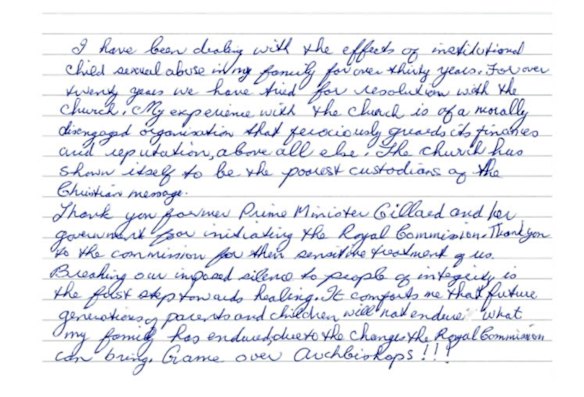 I have been dealing with the effects of institutional
child sexual abuse in my family for over thirty years. For over
twenty years we have tried for resolution with the
church. My experience with the church is of a morally
disengaged organisation that ferociously guards its finances
and reputation, above all else. The church has
shown itself to be the poorest custodians of the
Christian message.
Thank you former Prime Minister Gillard and her
government for initiating the Royal Commission. Thank you
to the commission for their sensitive treatment of us.
Breaking our imposed silence to people of integrity is
the first step towards healing. It comforts me that future
generations of parents and children will not endure what
my family has endured, due to the changes the Royal Commission
can bring. Game over Archbishops!!!